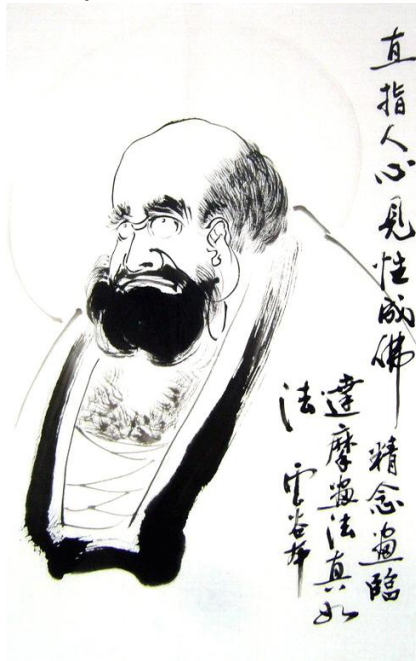 直指人心見性成佛
精念畫臨
達摩畫法真如
法
云谷